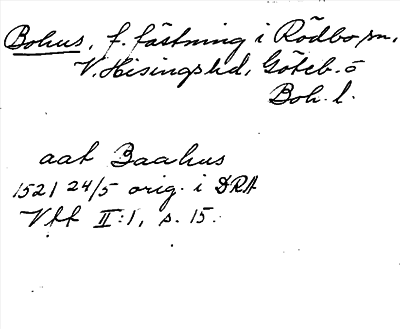 Bohus, f. fästning i Rödbo sn,
V. Hisings hd, Göteb. o
Boh. l.
aat Baahus
1521 24/5 orig. i DRA
Vff II:1, s. 15.